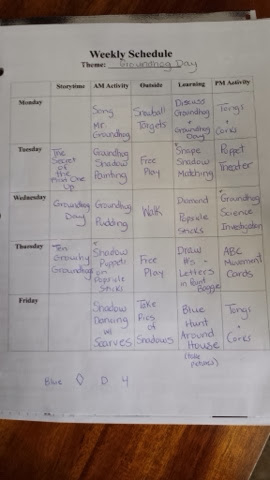 Weekly Schedule
Theme: Groundhog Day
Storytime AM Activity Outside Learning PM Activity
Monday
Song
Mr.
Groundhog
Snowball
Targets
Discuss
Groundhog
+
Groundhog
Day
Tongs
+
Corks
Tuesday
The
Secret
of the
First One
Up
Groundhog
Shadow
Painting
Free
Play
Shape
Shadow
Matching
Puppet
Theater
Wednesday
Groundhog
Day
Groundhog
Pudding
Walk
Diamond
Popsicle
Sticks
Groundhog
Science
Investigation
Thursday
Ten
Grouchy
Groundhogs
Shadow
Puppets
on
Popsicle
Sticks
Free
Play
Draw
#'s -
Letters
in Paint
Baggie
ABC
Movement
Cards
Friday
Shadow
Dancing
w/
Scarves
Take
Pics
of
Shadows
Blue
Hunt
Around
House
(take
pictures)
Tongs
+
Corks
Blue ◇ D 4